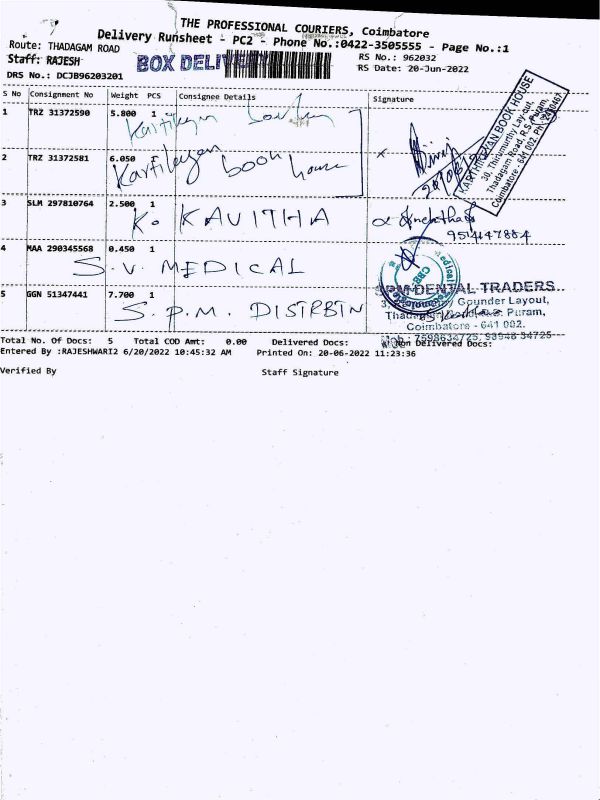 THE PROFESSIONAL COURIERS, Coimbatore
Delivery Runsheet - PC2 - Phone No.:0422-3505555 - Page No.:1
Route: THADAGAM ROAD
RS No.: 962032
Staff: RAJESH
BOX DELIVERY
RS Date: 20-Jun-2022
DRS No.: DCJB96203201
S No Consignment No Weight PCS Consignee Details Signature
1 TRZ 31372590 5.800 1
2 TRZ 31372581 6.050 Kartikeyan book house
KARTHIKEYAN BOOK HOUSE
30, Thirumurthy Lay-out,
Thadagam Road, R.S. Puram,
Coimbatore - 641 002.
3 SLM 297810764 2.500 1 K. KAVITHA
4 MAA 290345568 0.450 1 S.V. MEDICAL
5 GGN 51347441 7.700 1 S.P.M. DISTRBTN
SPM DENTAL TRADERS
Gounder Layout,
Puram,
Coimbatore - 641 002.
Total No. Of Docs: 5 Total COD Amt: 0.00 Delivered Docs: Non Delivered Docs:
Entered By :RAJESHWARI2 6/20/2022 10:45:32 AM Printed On: 20-06-2022 11:23:36
Verified By Staff Signature